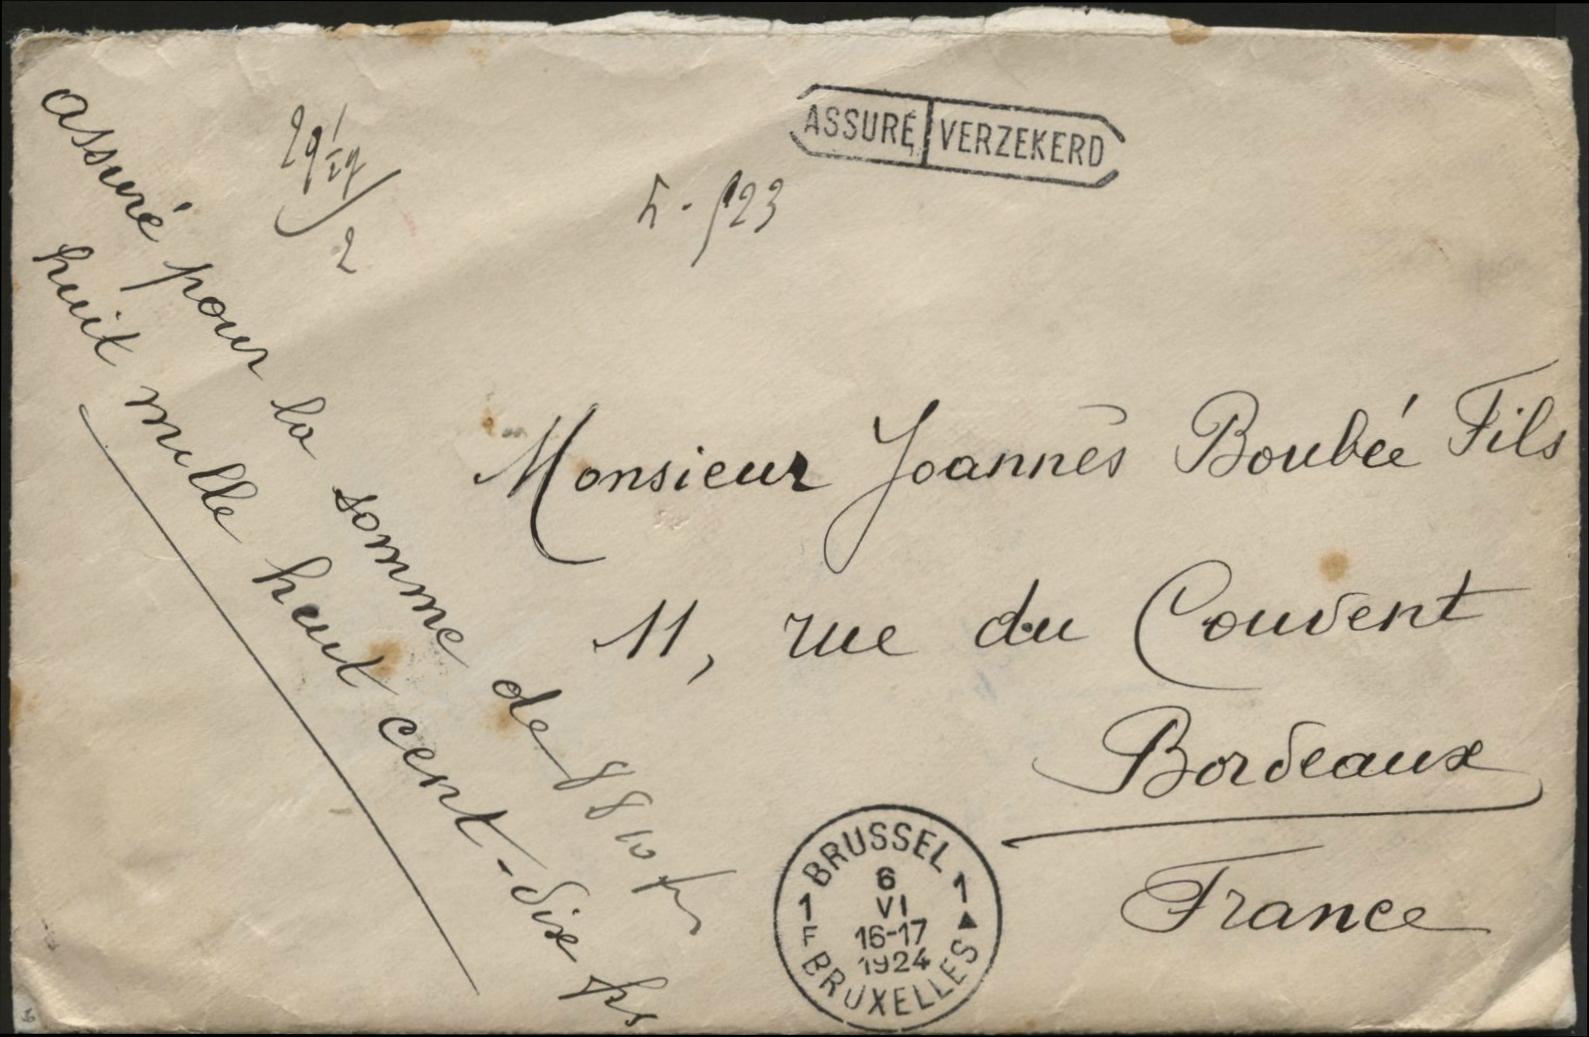 ASSURÉ VERZEKERD
assuré pour la somme de 8810 frs
huit mille huit cent-dix frs
Monsieur Joannès Boubée Fils
11, rue du Couvent
Bordeaux
France
BRUSSEL
1 1
6
VI
16-17
1924
F
BRUXELLES